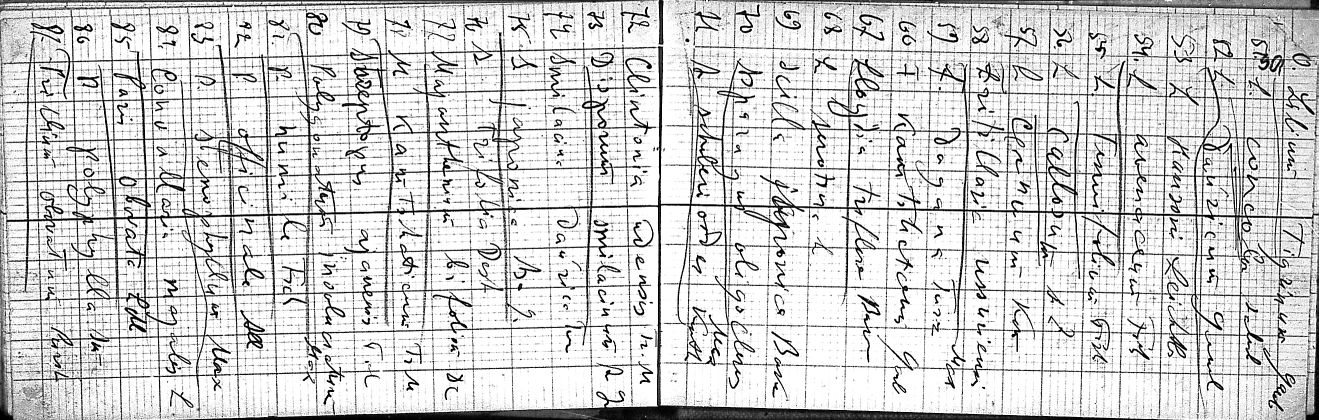 50. Lilium Tigrinum Gawl
51. L. concolor Salisb
52 L. Dauricum Gawl
53 L Hansoni Leichtl.
54. L avenaceum Fisch
55 L. Tenuifolium Fisch
56. L Callosum S Z
57 L Cernuum Kom
58 Fritillaria ussuriensis
59 F. Dagana Turcz
60 F Kamtschatcens Gawl
67 Lloydia triflora Baker
68 L serotina L
69 Scilla japonica Baker
70 Asparagus oligoclonos
71. A schoberioides Kunth
72 Clintonia udensis Tr. M
73 Disporum smilacinum A g
74 Smilacina Daurica Tu
75. S japonica A. g.
76 S trifolia Desf
77 Majanthemum bifolium DC
78 M Kamtschaticum
79 Streptopus ajanensis Til
80 Polygonatum involucratum Max
81. P. humile Fisch
82 P officinale All
83 P. stenophyllum Max
84. Convallaria majalis L
85 Paris obovata Led
86 P polyphylla Sm
87 Trillium obovatum Pursh